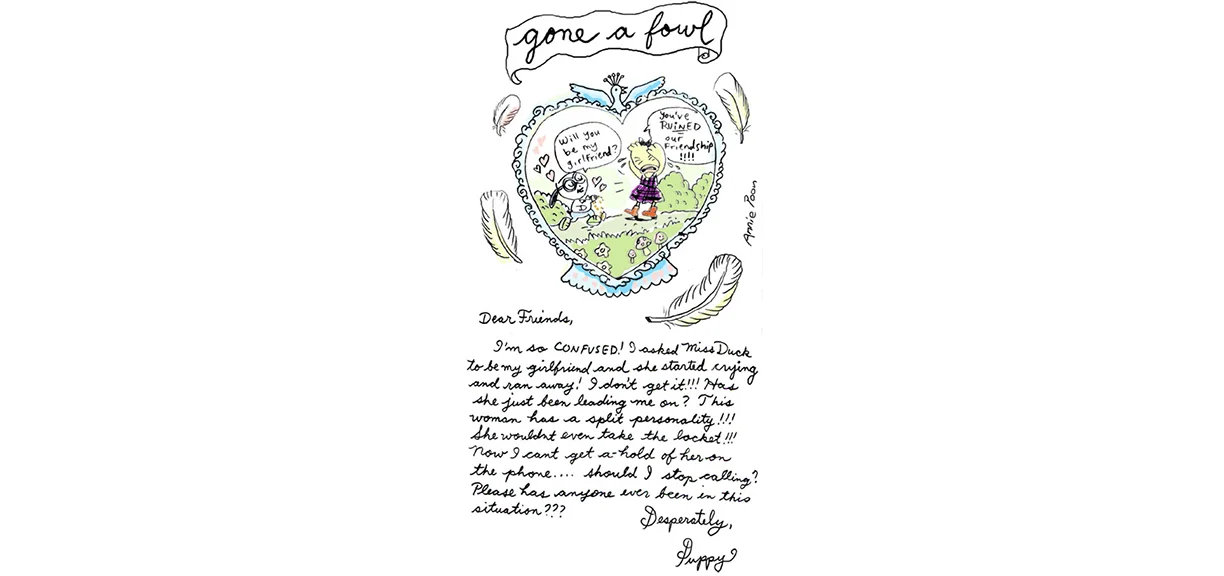 gone a fowl
Will you
be my
girlfriend?
You've
RUINED
our
Friendship
!!!!
Annie Poon
Dear Friends,
I'm so CONFUSED! I asked Miss Duck
to be my girlfriend and she started crying
and ran away! I don't get it!!! Has
she just been leading me on? This
woman has a split personality!!!
She wouldnt even take the locket!!!
Now I cant get a-hold of her on
the phone.... should I stop calling?
Please has anyone ever been in this
situation???
Desperately,
Puppy